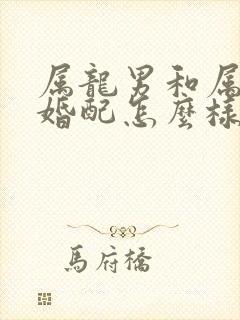 属龍男和属
婚配怎麼樣
馬府橋